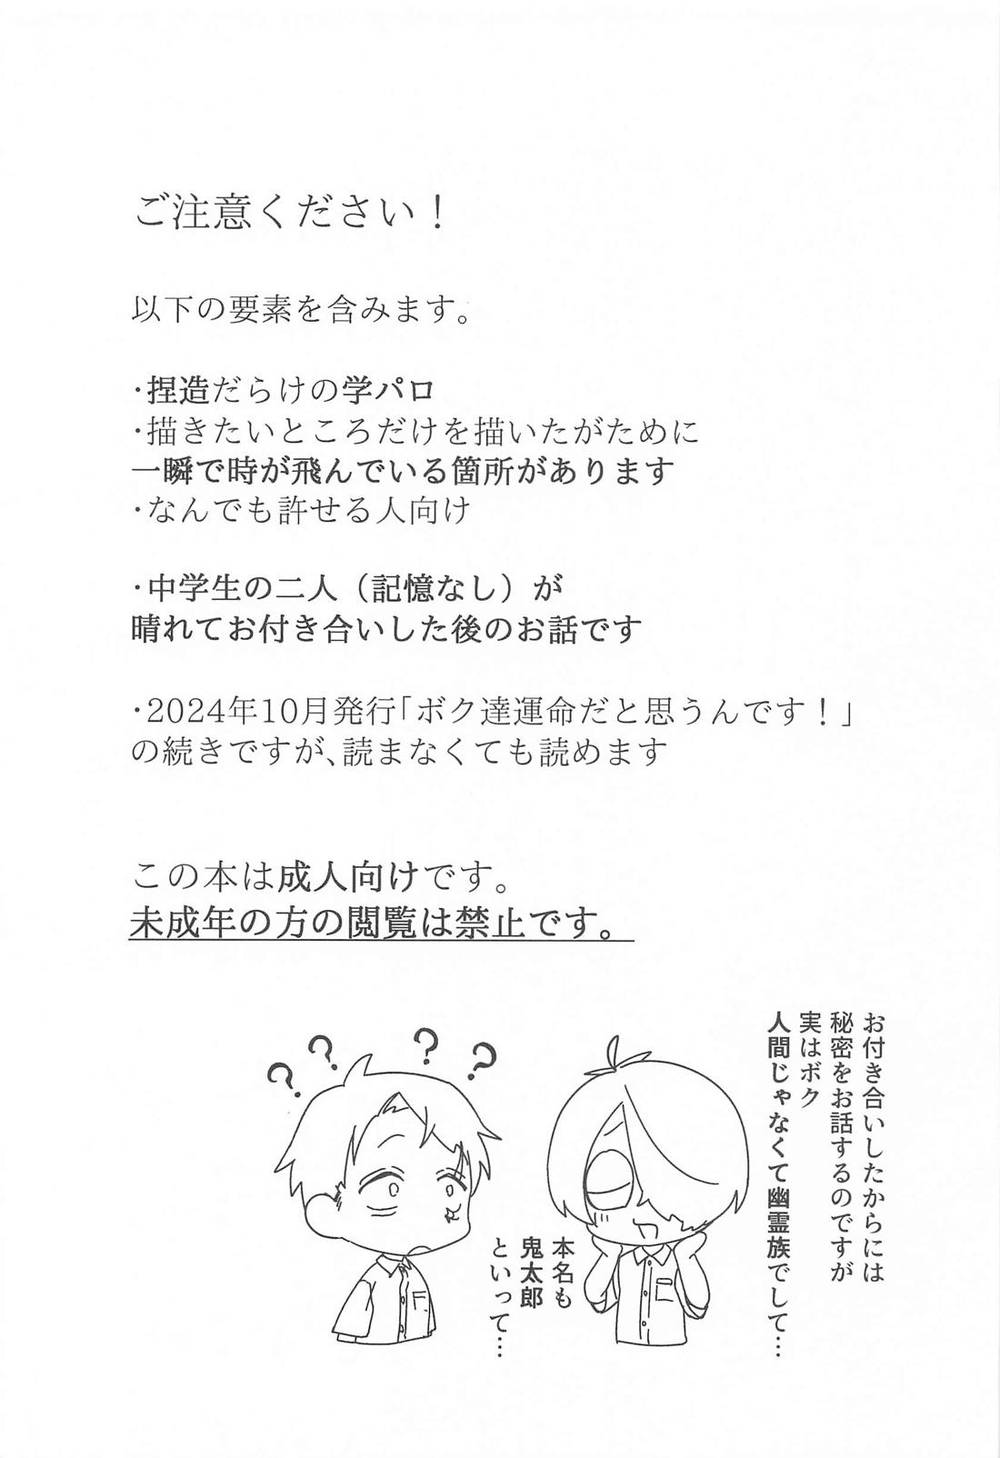 ご注意ください！
以下の要素を含みます。
・捏造だらけの学パロ
・描きたいところだけを描いたがために
一瞬で時が飛んでいる箇所があります
・なんでも許せる人向け
・中学生の二人（記憶なし）が
晴れてお付き合いした後のお話です
・2024年10月発行「ボク達運命だと思うんです！」
の続きですが、読まなくても読めます
この本は成人向けです。
未成年の方の閲覧は禁止です。
お付き合いしたからには
秘密をお話するのですが
実はボク
人間じゃなくて幽霊族でして…
本名も
鬼太郎
といって…
? ? ? ?